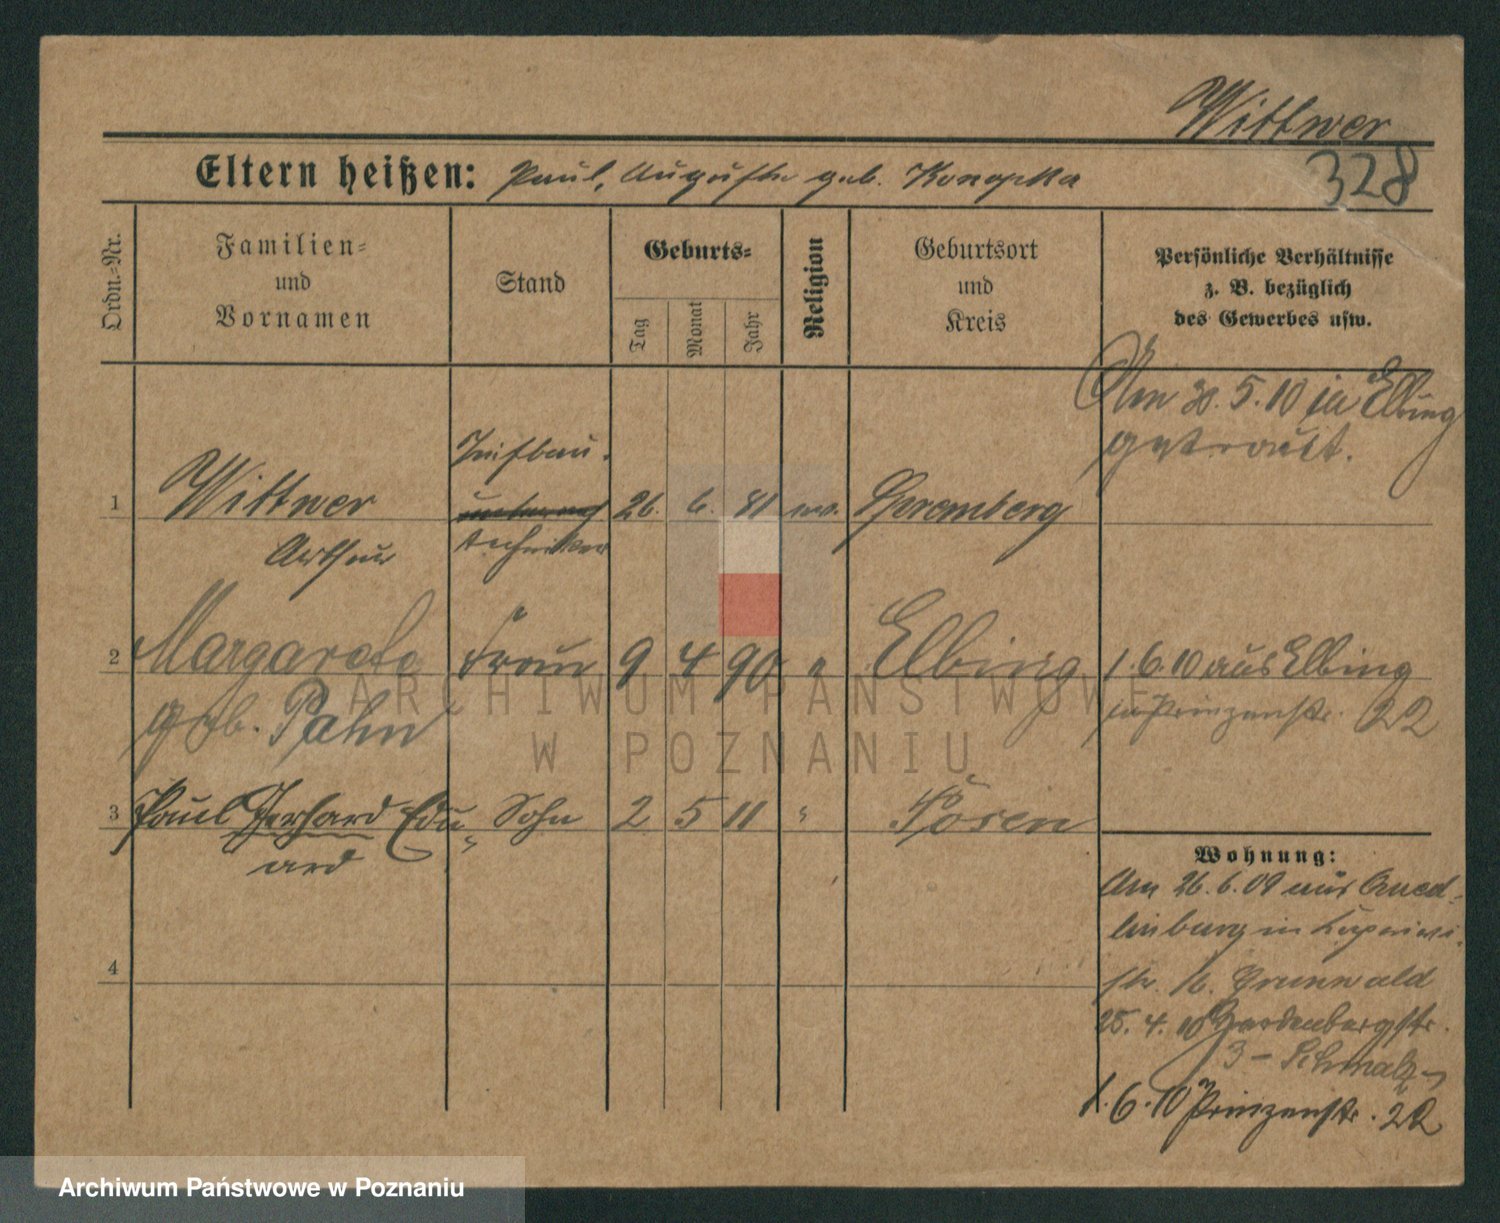 Wittwer
328
Eltern heißen: Paul, Auguste geb. Konopka
Ordn.=Nr.
Familien=
und
Vornamen
Stand
Geburts=
Tag
Monat
Jahr
Religion
Geburtsort
und
Kreis
Persönliche Verhältnisse
z. B. bezüglich
des Gewerbes usw.
Am 30. 5. 10 in Elbing
getraut.
Tiefbau-
1 Wittwer 26. 6. 81 ev. Spremberg
Arthur techniker
2 Margarete Frau 9 4 90 " Elbing 1. 6. 10 aus Elbing
geb. Pahn in Prinzenstr. 22
3 Paul Gerhard Edu= Sohn 2 5 11 " Posen
ard
Wohnung:
Am 26. 6. 09 aus Qued-
linburg in
str. 16. Grunwald
25. 4. 10 Hardenbergstr.
3 - Schmalz
4
1. 6. 10 Prinzenstr. 22
ARCHIWUM PAŃSTWOWE
W POZNANIU
Archiwum Państwowe w Poznaniu